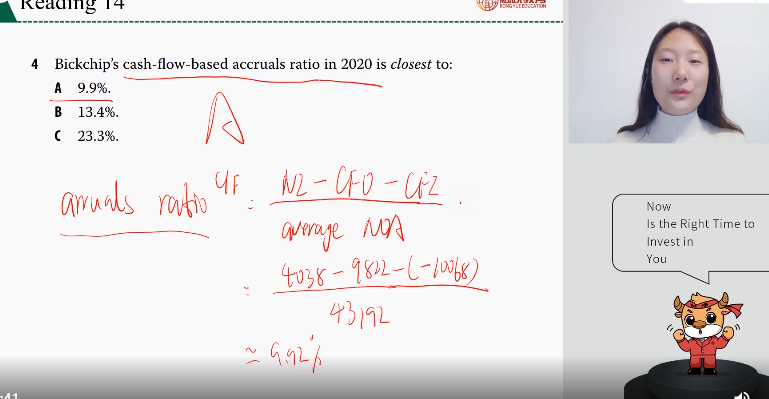 Reading 14
RONGYUE EDUCATION
4 Bickchip's cash-flow-based accruals ratio in 2020 is closest to:
A 9.9%.
B 13.4%.
C 23.3%.
A
arruals ratio CF = NI - CFO - CFI
average NOA
= 4038 - 9822 - (-10068)
43192
≈ 9.92%
Now
Is the Right Time to
Invest in
You
:41